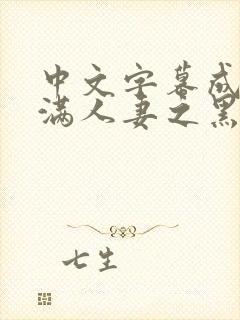 中文字幕成
满人妻之黑
七生